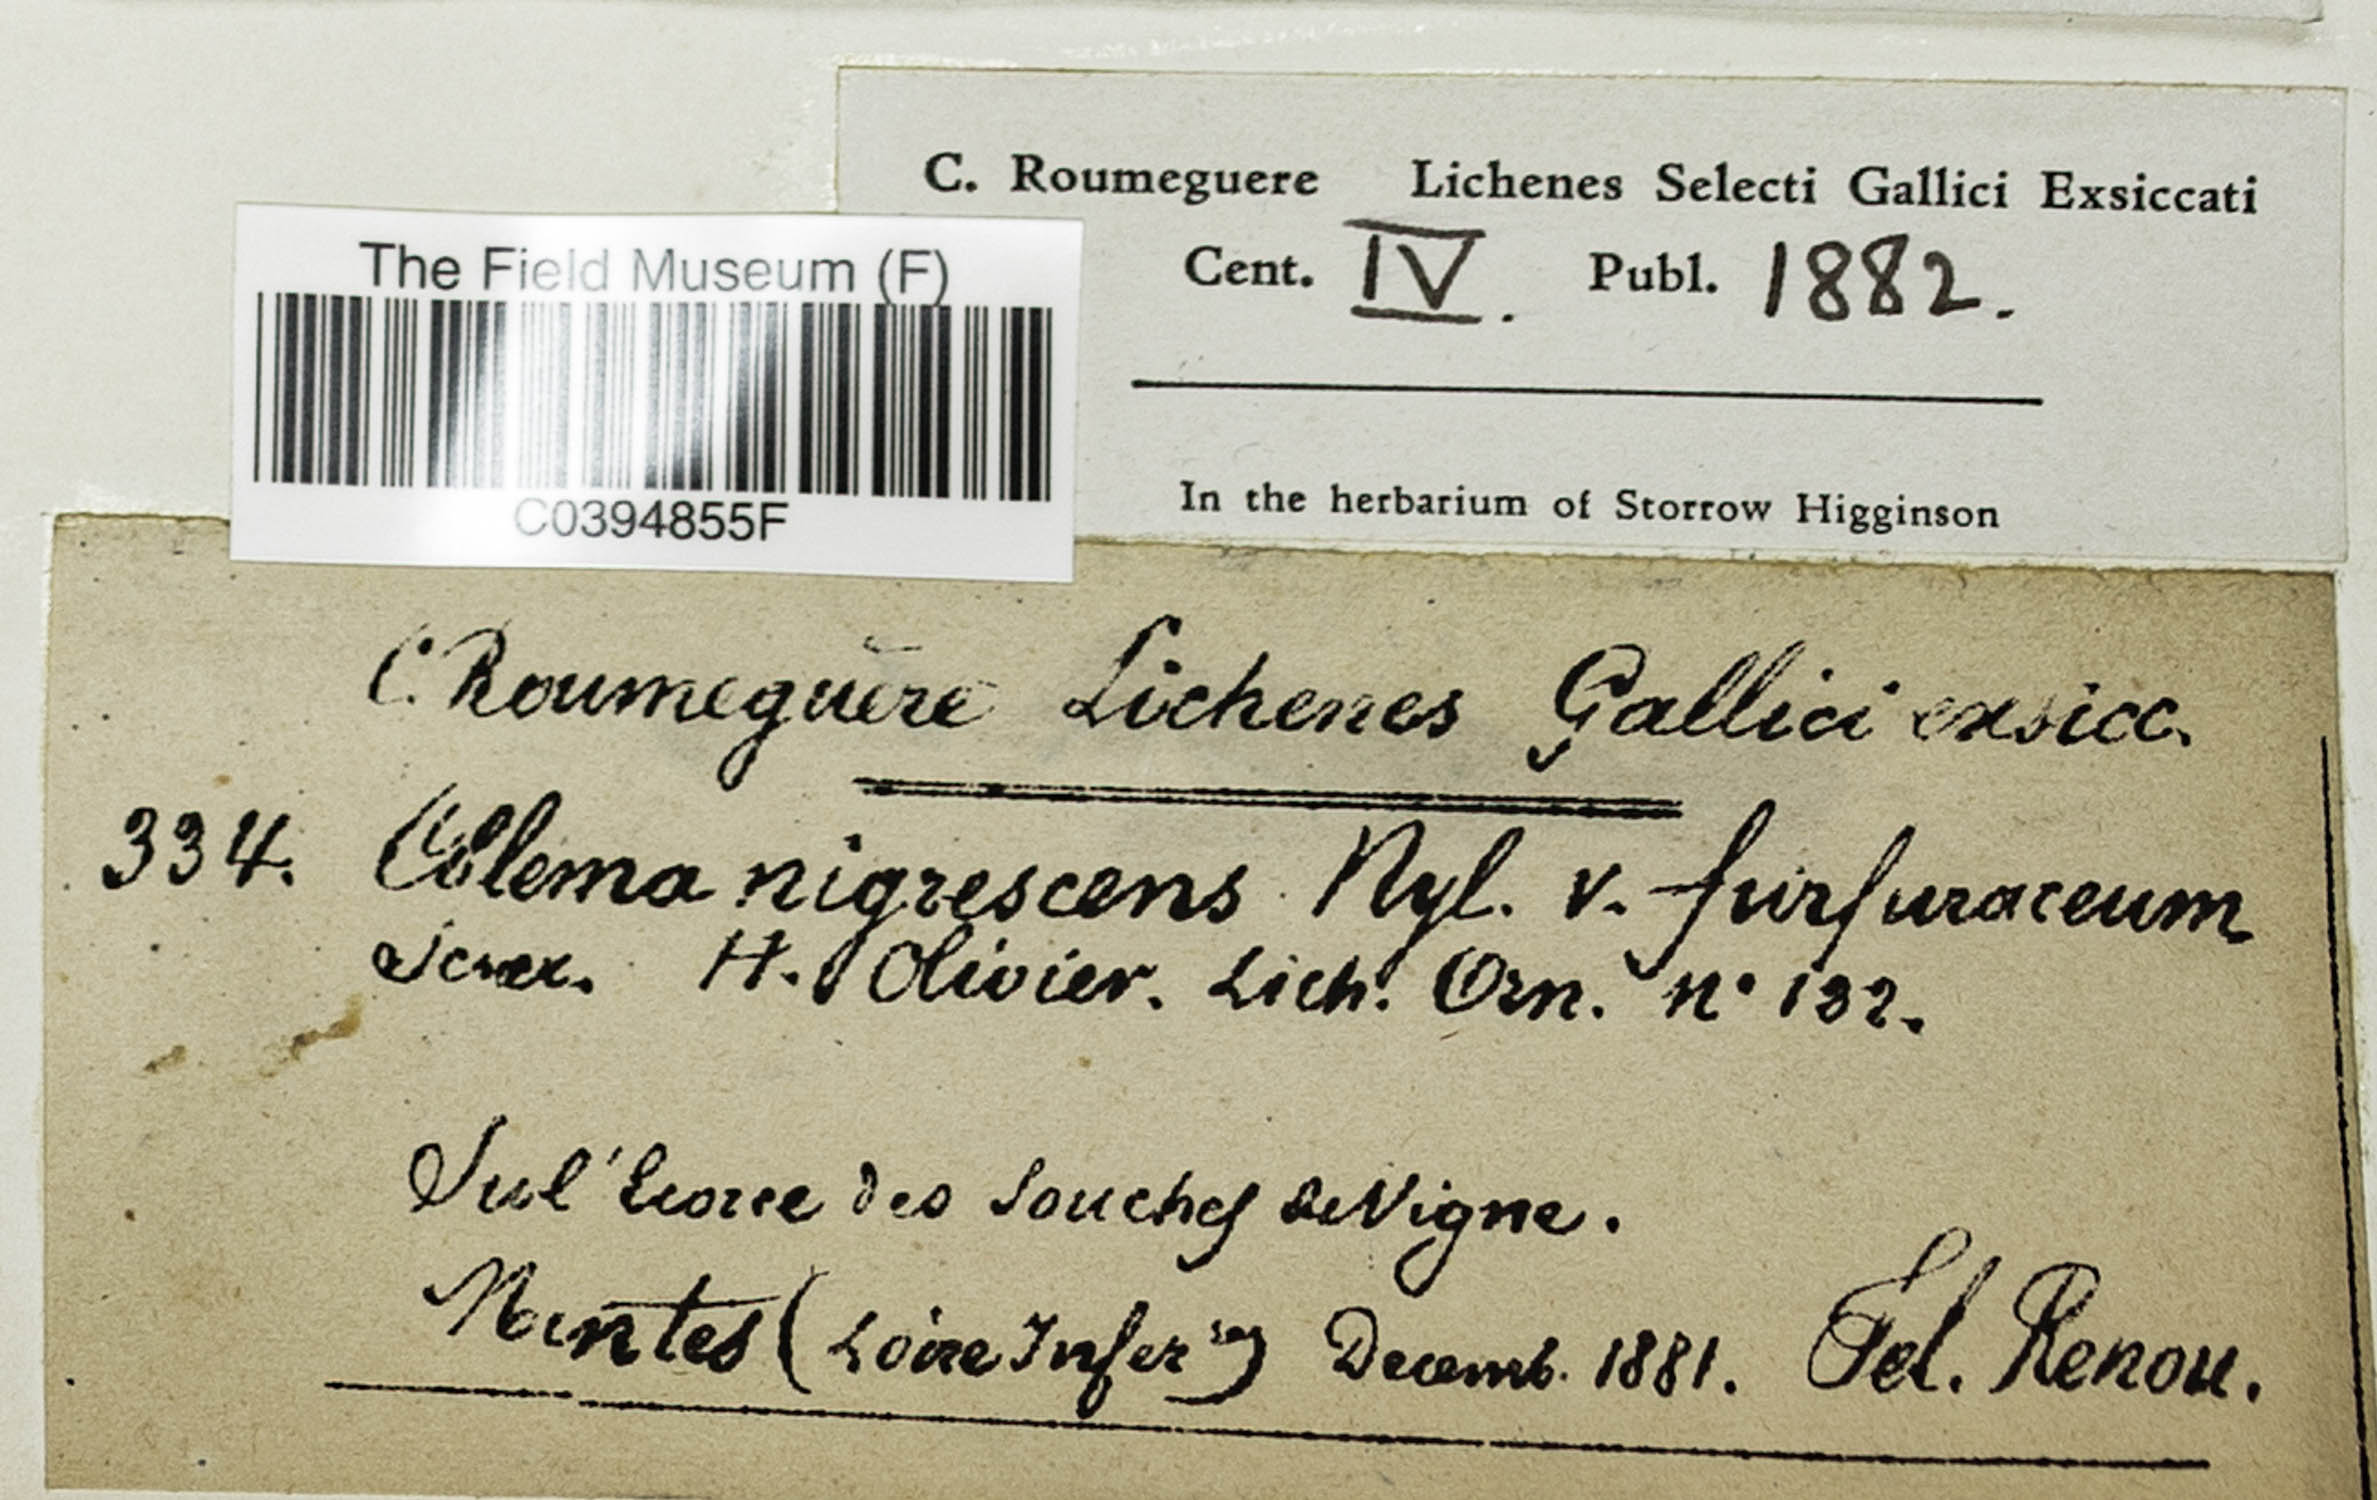 C. Roumeguere Lichenes Selecti Gallici Exsiccati
Cent. IV. Publ. 1882.
In the herbarium of Storrow Higginson
The Field Museum (F)
C0394855F
C. Roumeguère Lichenes Gallici exsicc.
334. Collema nigrescens Nyl. v. furfuraceum
Scræx. H. Olivier. Lich. Orn. n° 132.
Sul'Ecorce des Souches de Vigne.
Nantes (Loire Infer res) Decemb. 1881. Fel. Renou.